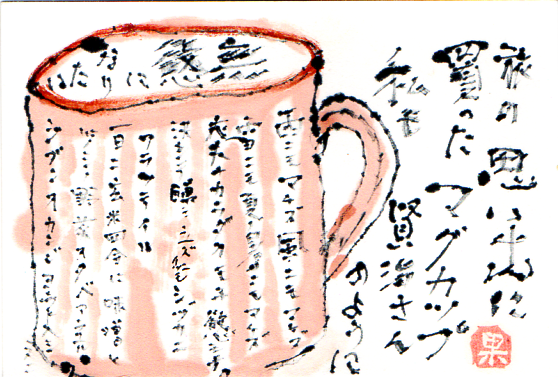 旅の思い出に
買ったマグカップ
私も
賢治さん
のように
無慾に
なり
たい
雨ニモマケズ風ニモマケズ
雪ニモ夏ノ暑サニモマケズ
丈夫ナカラダヲモチ慾ハナク
決シテ瞋ラズイツモシヅカニ
ワラッテヰル
一日ニ玄米四合ト味噌ト
野菜ヲタベ
果